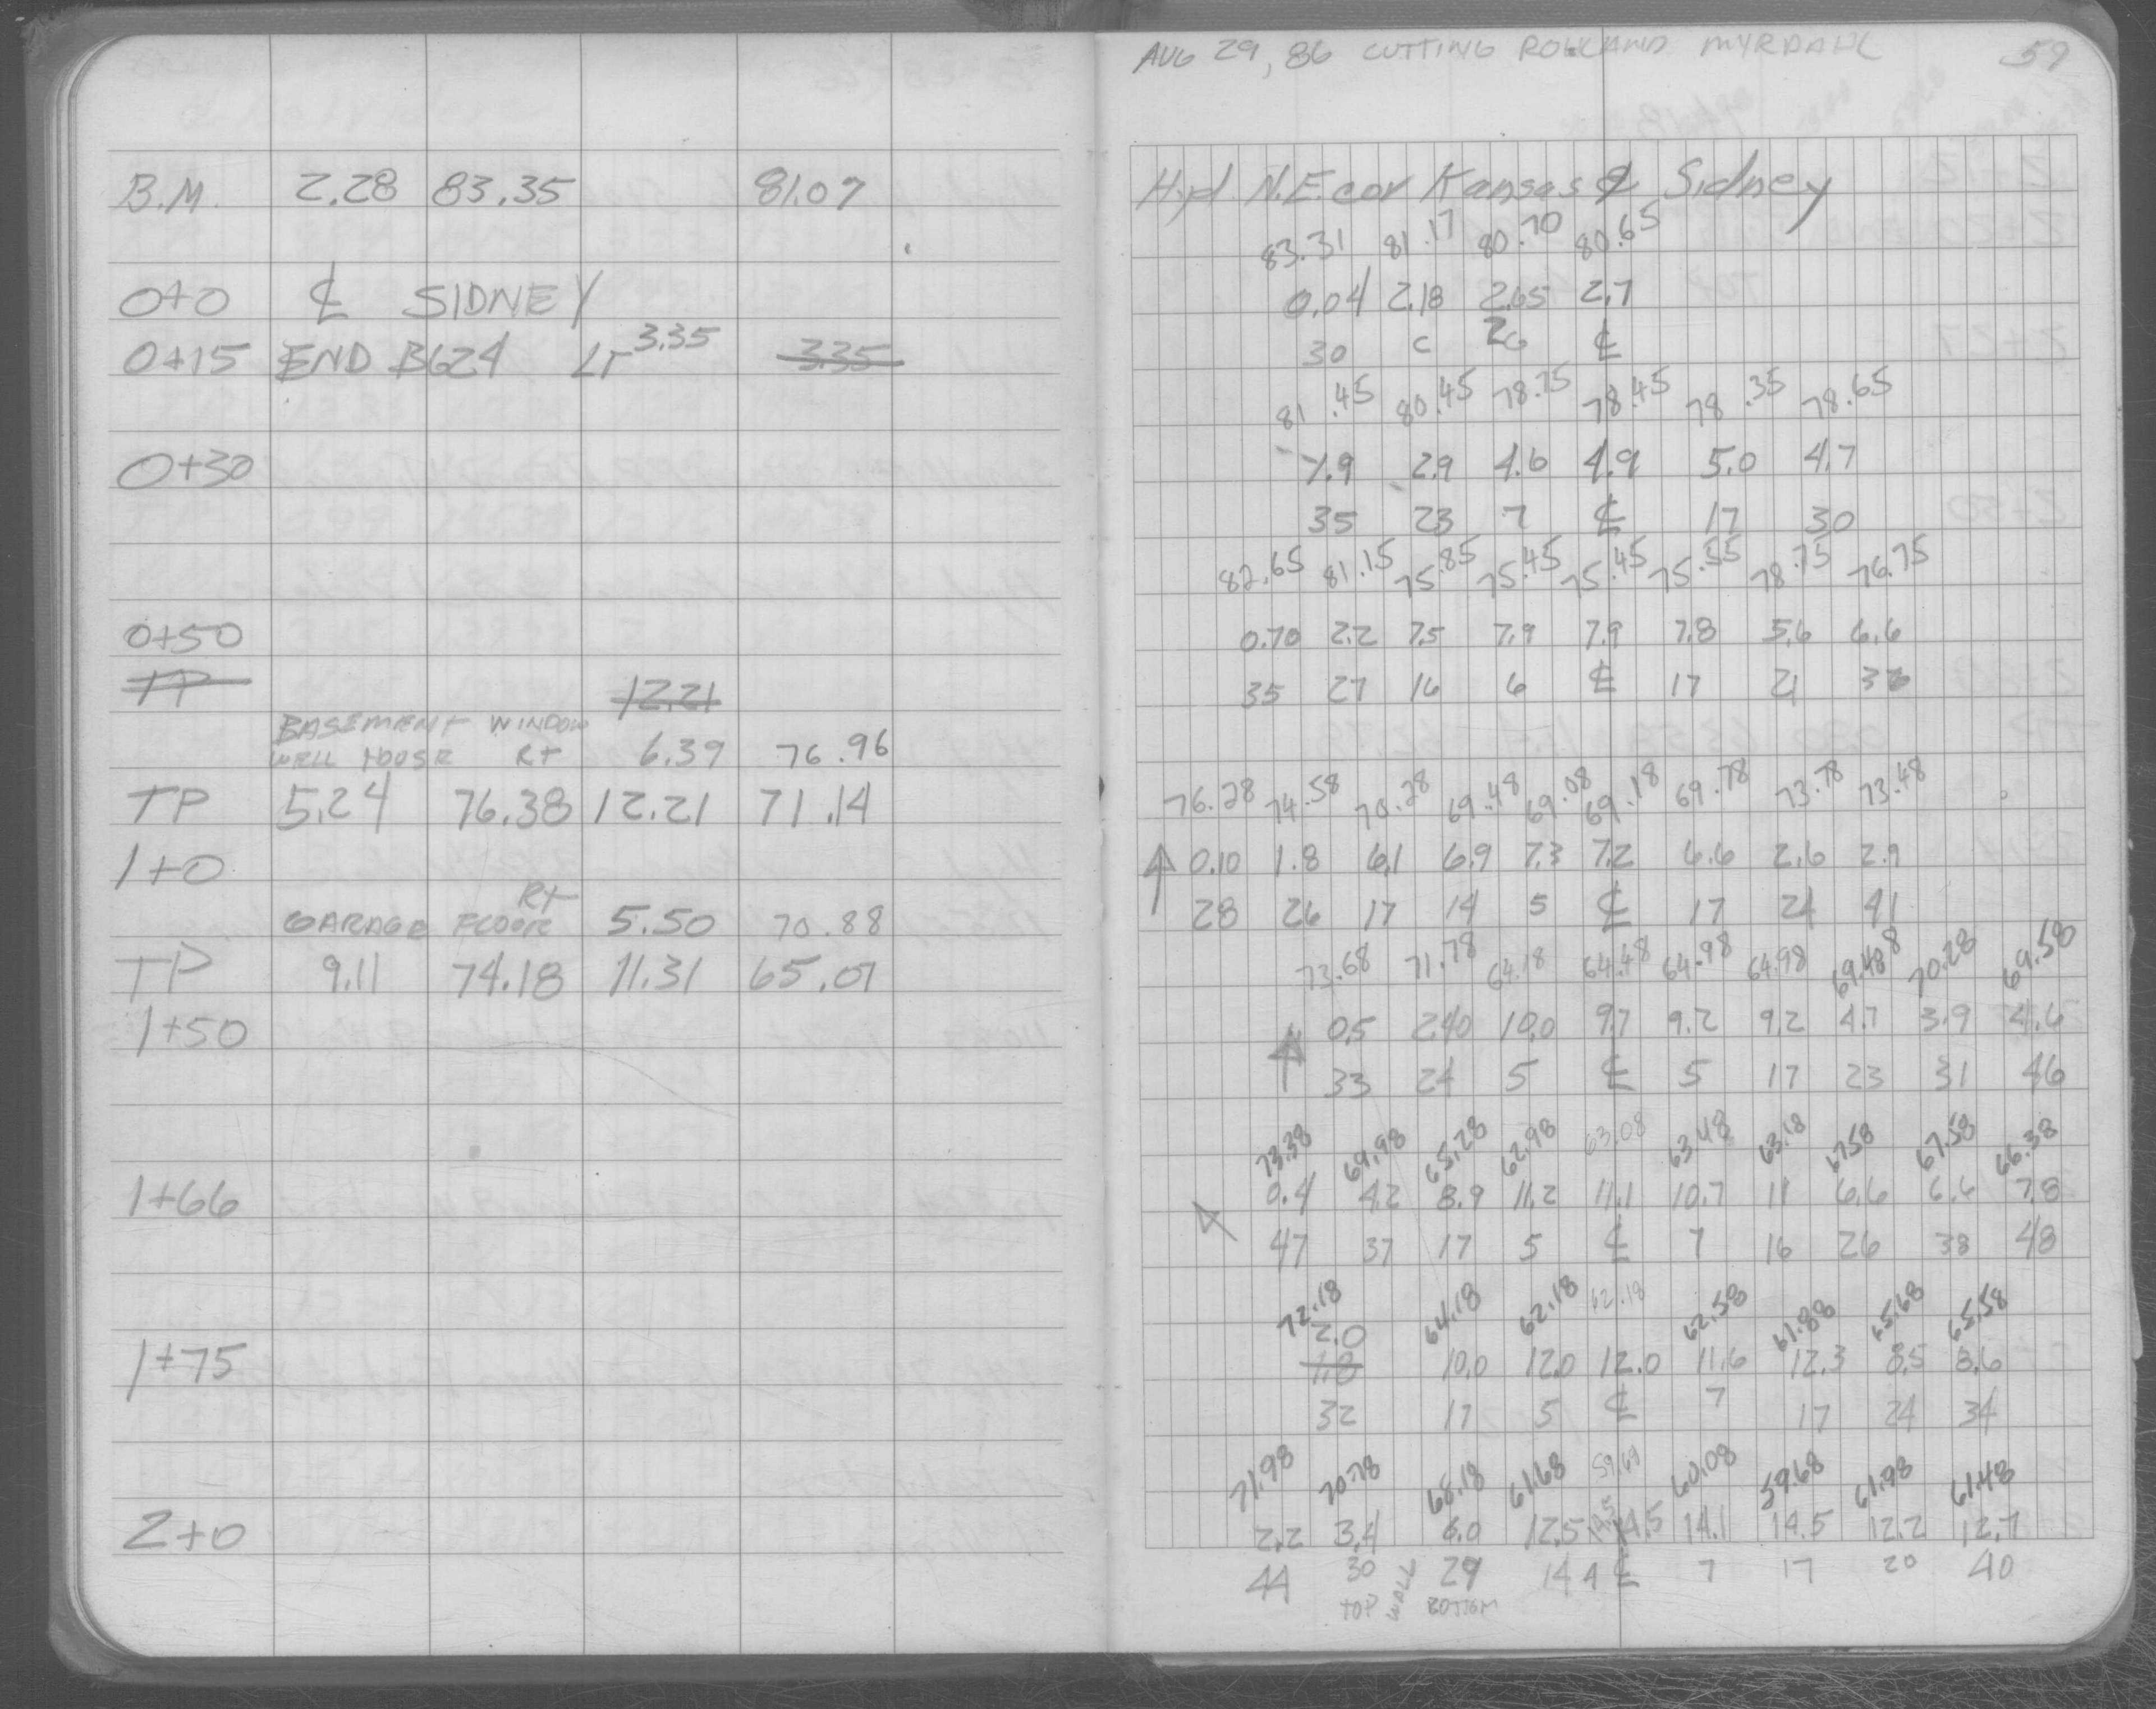 B.M. 2.28 83.35 81.07
0+0 ℄ SIDNEY
0+15 END BLG24 LT 3.35 3.35
0+30
0+50
TP 12.21
BASEMENT WINDOW
WELL HOUSE RT 6.39 76.96
TP 5.24 76.38 12.21 71.14
1+0
RT
GARAGE FLOOR 5.50 70.88
TP 9.11 74.18 11.31 65.07
1+50
1+66
1+75
2+0
AUG 29, 86 CUTTING ROWLAND MYRDAHL 59
Hyd N.E. cor Kansas & Sidney
83.31 81.17 80.70 80.65
0.04 2.18 2.65 2.7
30 C 26 ℄
81.45 80.45 78.75 78.45 78.35 78.65
1.9 2.9 4.6 4.9 5.0 4.7
35 23 7 ℄ 17 30
82.65 81.15 75.85 75.45 75.45 75.55 78.75 76.75
0.70 2.2 7.5 7.9 7.9 7.8 5.6 6.6
35 27 16 6 ℄ 17 21
76.28 74.58 70.28 69.48 69.08 69.18 69.78 73.78 73.48
0.10 1.8 6.1 6.9 7.3 7.2 6.6 2.6 2.9
28 26 17 14 5 ℄ 17 24 41
73.68 71.78 64.18 64.48 64.98 64.98 69.48 70.28 69.58
0.5 2.40 10.0 9.7 9.2 9.2 4.7 3.9 4.6
33 24 5 ℄ 5 17 23 31 46
73.38 69.98 65.28 62.98 63.08 63.48 63.18 67.58 67.58 66.38
0.4 4.2 8.9 11.2 11.1 10.7 11 6.6 6.6 7.8
47 37 17 5 ℄ 7 16 26 38 48
72.18 64.18 62.18 62.18 62.58 61.88 65.68 65.58
2.0
1.8 10.0 12.0 12.0 11.6 12.3 8.5 8.6
32 17 5 ℄ 7 17 24 34
71.98 70.78 68.18 61.68 59.69 60.08 59.68 61.98 61.48
2.2 3.4 6.0 12.5 14.5 14.5 14.1 14.5 12.2 12.7
44 30 29 14 4 ℄ 7 17 20 40
TOP WALL BOTTOM